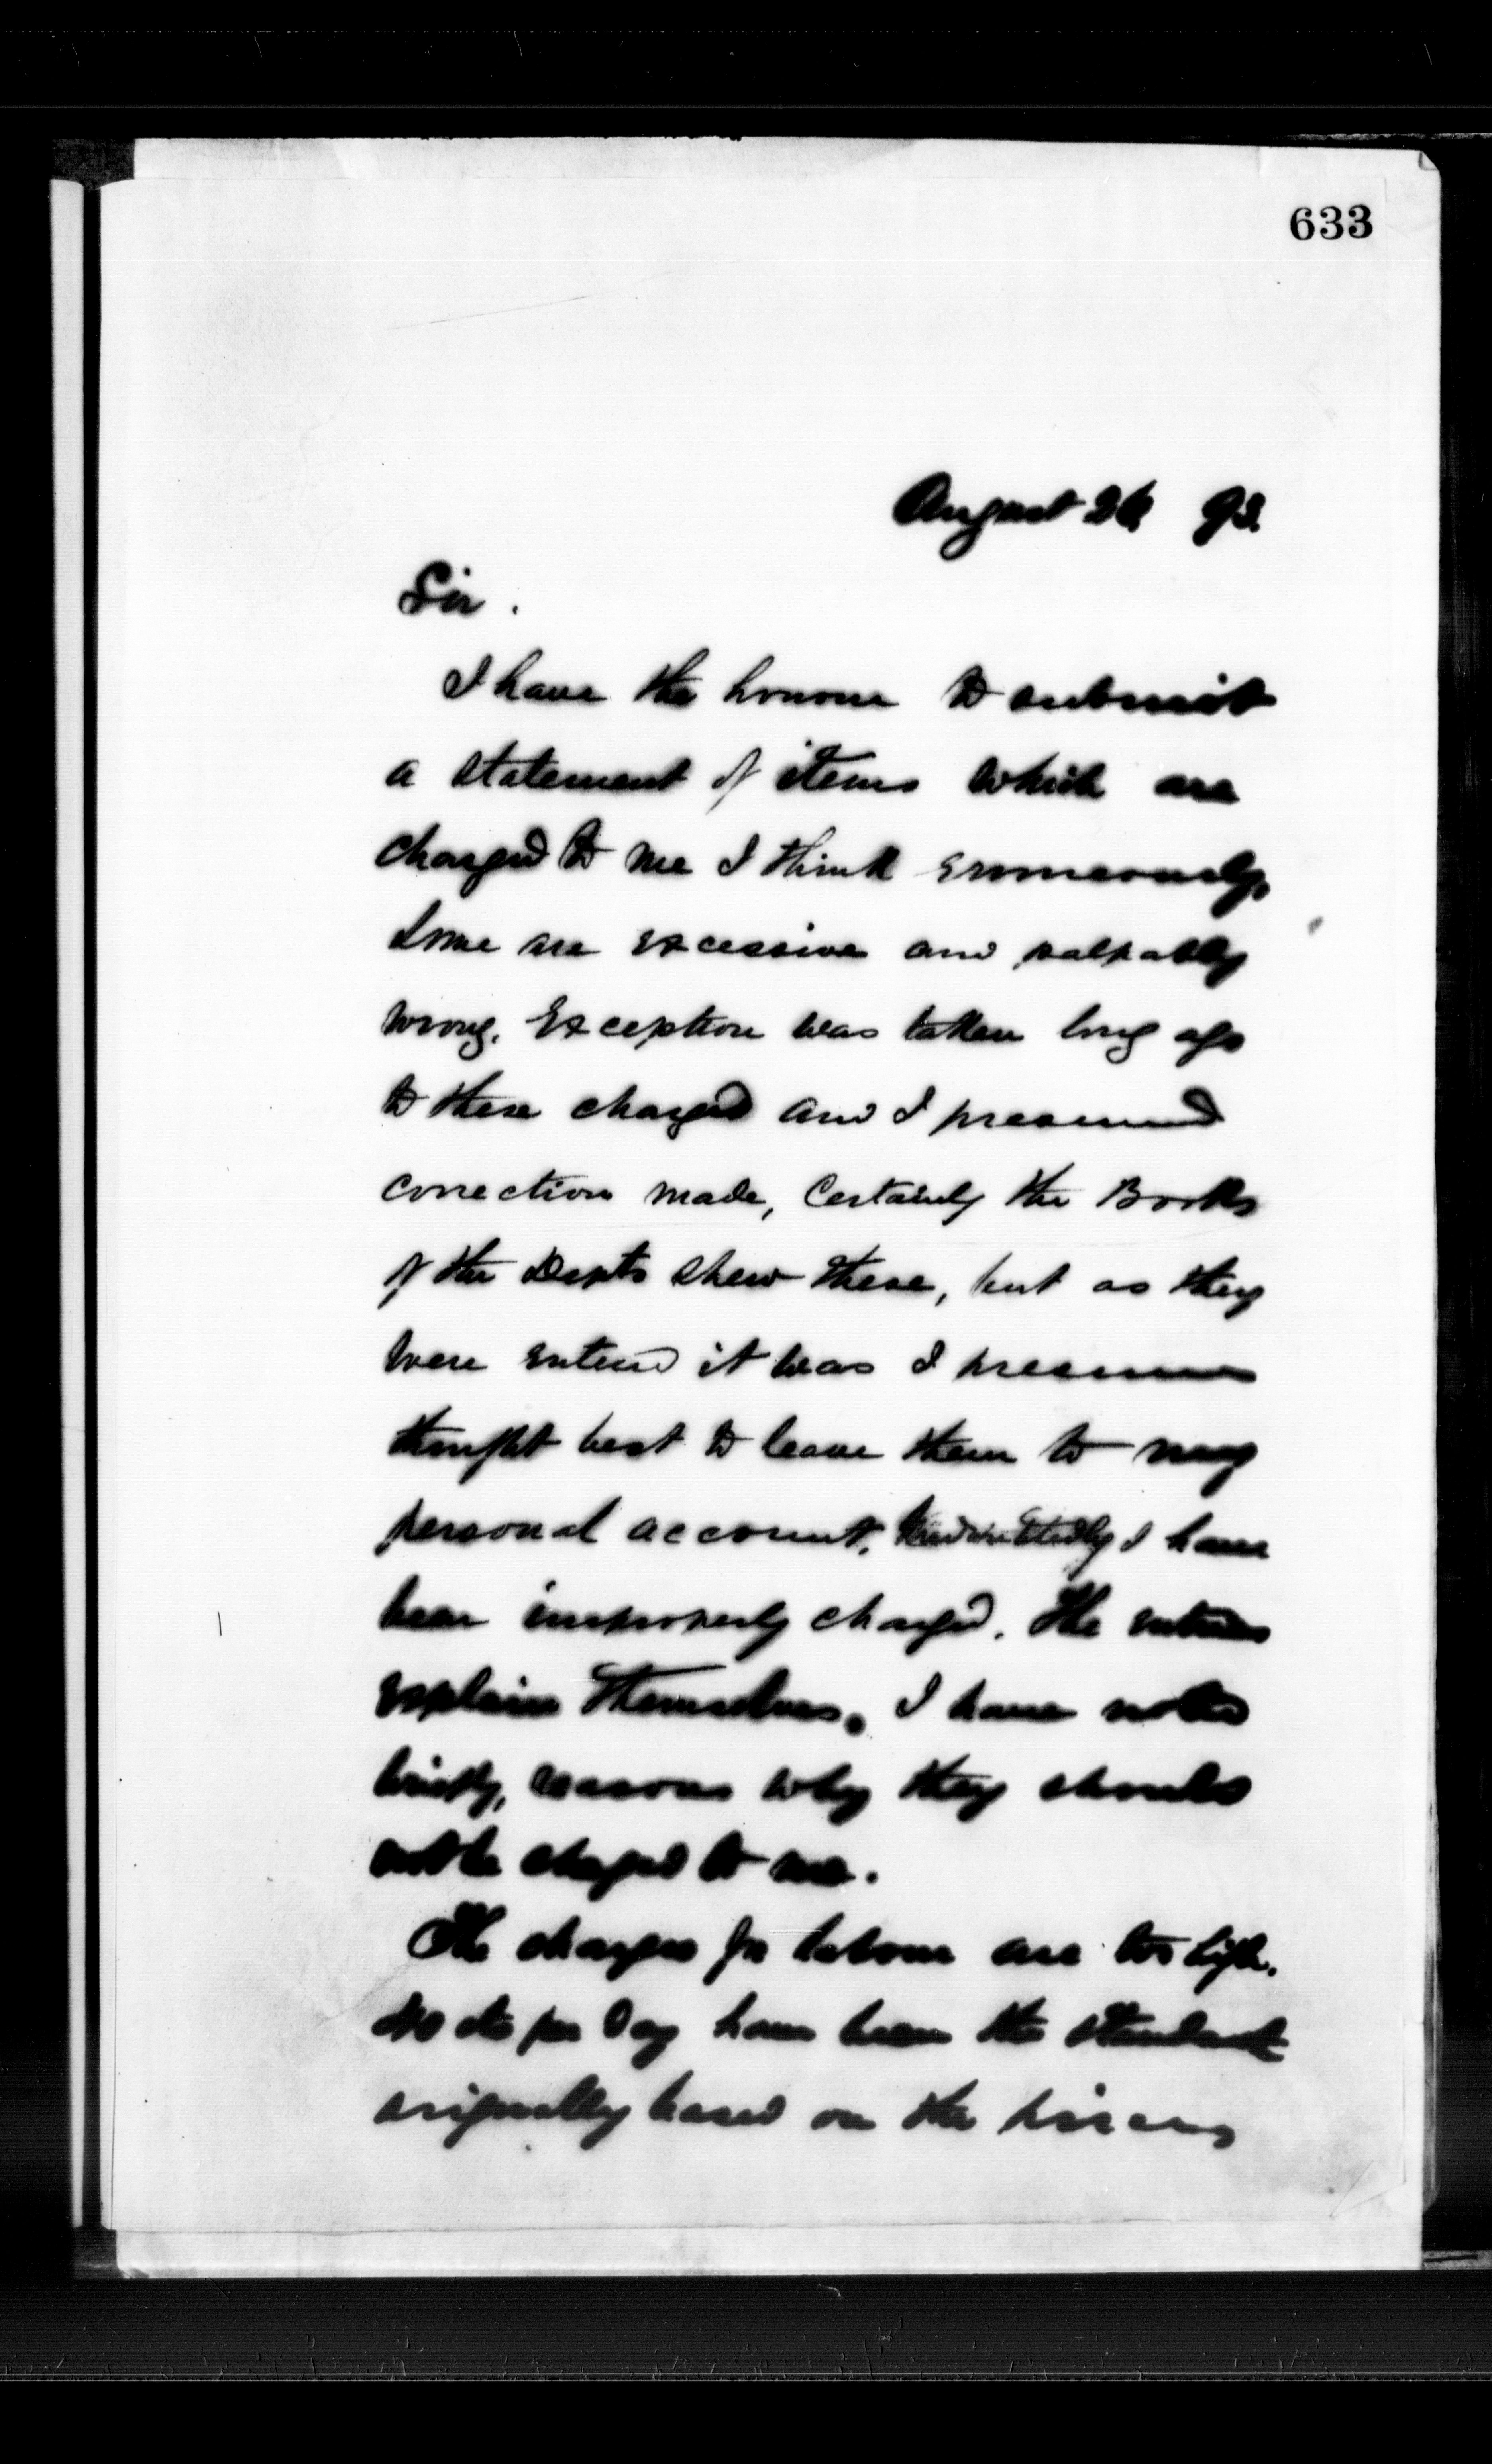 633
August 26 93.
Sir.
I have the honour to submit
a statement of items which are
charged to me I think erroneously,
Some are excessive and palpably
wrong. Exception was taken long ago
to these charged and I presumed
correction made, Certainly the Books
of the Depts shew these, but as they
were entered it was I presume
thought best to leave them to my
personal account. Undoubtedly I have
been improperly charged. The entries
explain themselves. I have noted
briefly, reasons why they should
not be charged to me.
The charges for labour are too high.
40 cts per Day have been the standard
originally based on the